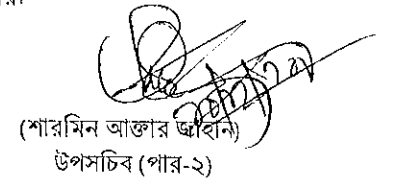 (শারমিন আক্তার জাহান)
উপসচিব (পার-২)